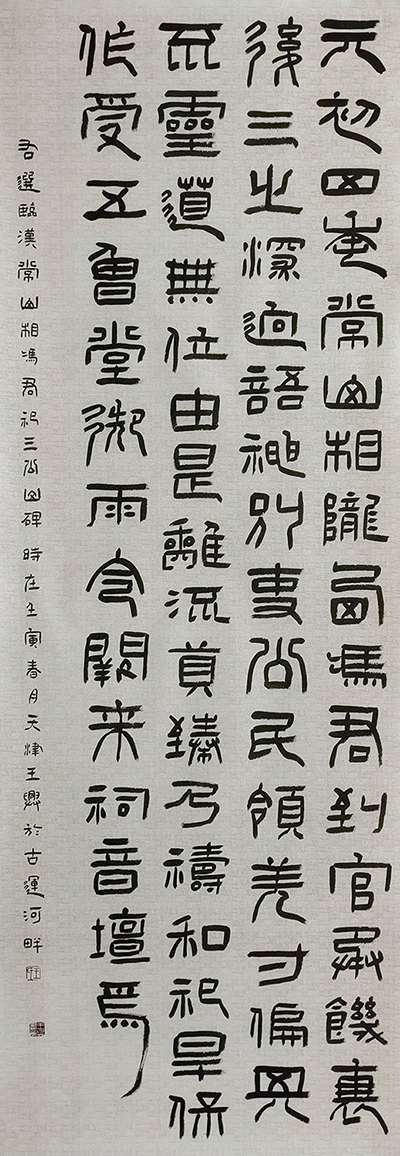 元初四年常山相隴西馮君到官承饑衰
後三之深迥語神別吏公民領羌寸偏興
靈道無位由是離流臻乃禱和祀旱保
作受五魯堂御雨令闕来祠音壇焉
右選臨漢常山相馮君祀三公山碑 時在壬寅春月天津王興於古運河畔